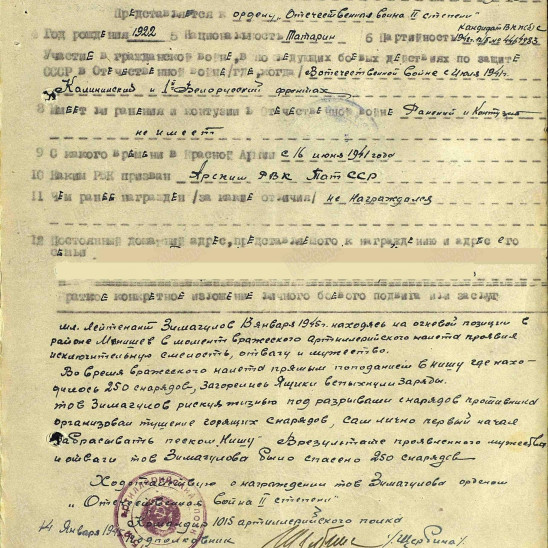 Представляется к ордену „Отечественная война II степени"
4 Год рождения 1922 5 Национальность Татарин 6 Партийность Кандидат ВКП(б) с
Участие в гражданской войне, в последующих боевых действиях по защите
СССР в Отечественной войне/где, когда/ В отечественной войне с июля 1941г.
Калининский и 1й Белорусский фронтах
8 Имеет ли ранения и контузии в Отечественной войне Ранений и Контузий
не имеет
9 С какого времени в Красной Армии с 16 июня 1941 года
10 Каким РВК призван Арский РВК Тат ССР
11 Чем ранее награжден /за какие отличия/ не награждался
12 Постоянный домашний адрес, представляемого к награждению и адрес его
семьи
Краткое конкретное изложение личного боевого подвига или заслуг
мл. лейтенант Зимагулов 13 января 1945г. находясь на огневой позиции в
районе в момент вражеского артиллерийского налета проявил
исключительную смелость, отвагу и мужество.
Во время вражеского налета прямым попаданием в нишу где нахо-
дилось 250 снарядов, загорелись ящики вспыхнули заряды.
тов Зимагулов рискуя жизнью под разрывами снарядов противника
организовал тушение горящих снарядов, сам лично первый начал
забрасывать песком нишу. В результате проявленного мужества
и отваги тов Зимагулова было спасено 250 снарядов
Ходотайствую о награждении тов Зимагулова орденом
„Отечественная война II степени"
14 Января 194 Командир 1015 артиллерийского полка
Подполковник /Щербина/